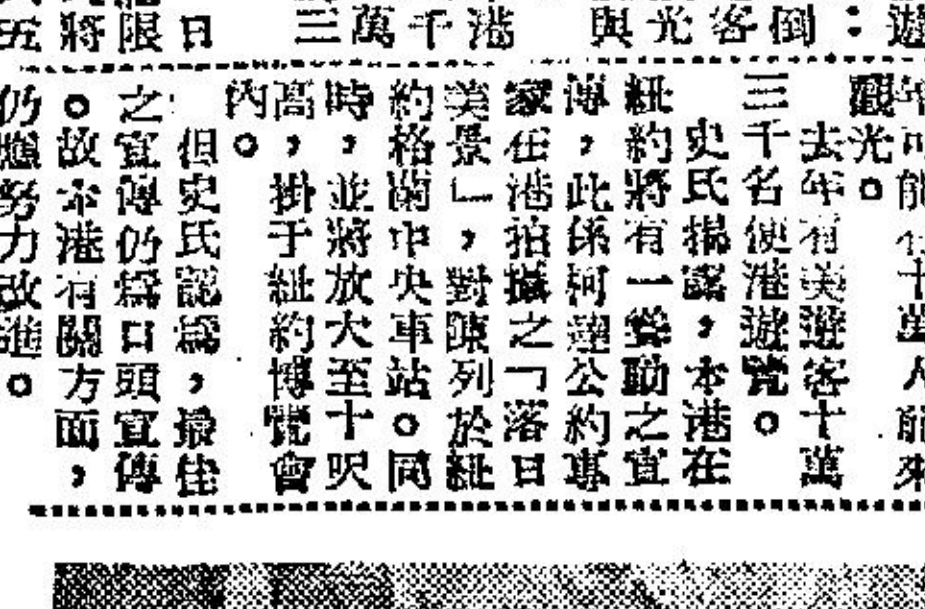 遊
：
倒
客
光
與
港
千
萬
三
日
限
將
五
年可能有十萬人前來
觀光。
去年有美遊客十萬
三千名便港遊覽。
史氏揚露，本港在
紐約將有一聳動之宣
傳，此係柯達公約專
家任港拍攝之「落日
美景」，對陳列於紐
約格蘭中央車站。同
時，並將放大至十呎
高，掛于紐約博覽會
內。
但史氏認爲，最佳
之宣傳仍爲口頭宣傳
。故本港有關方面，
仍應努力改進。